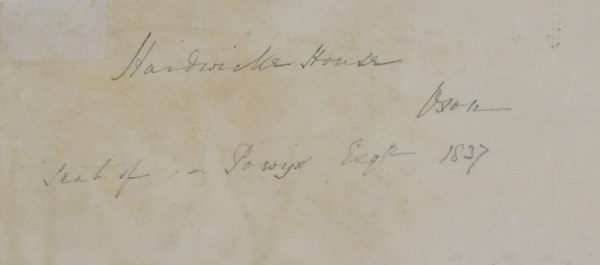 Hardwicke House
Oxon
seat of - Powys Esqr 1837